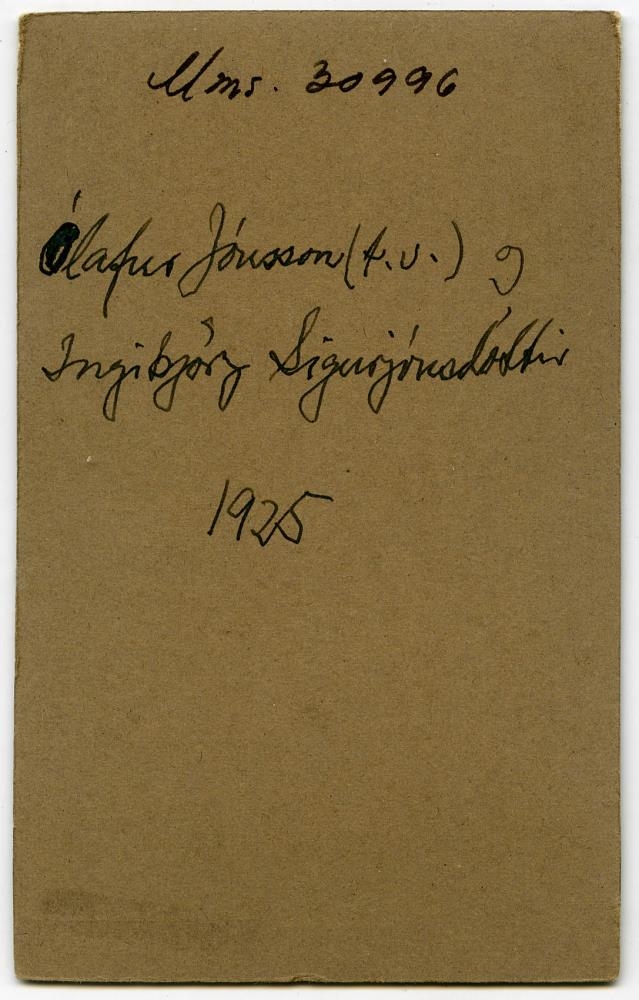 Mms. 30996
Ólafur Jónsson (t.v.) og
Ingibjörg Sigurjónsdóttir
1925